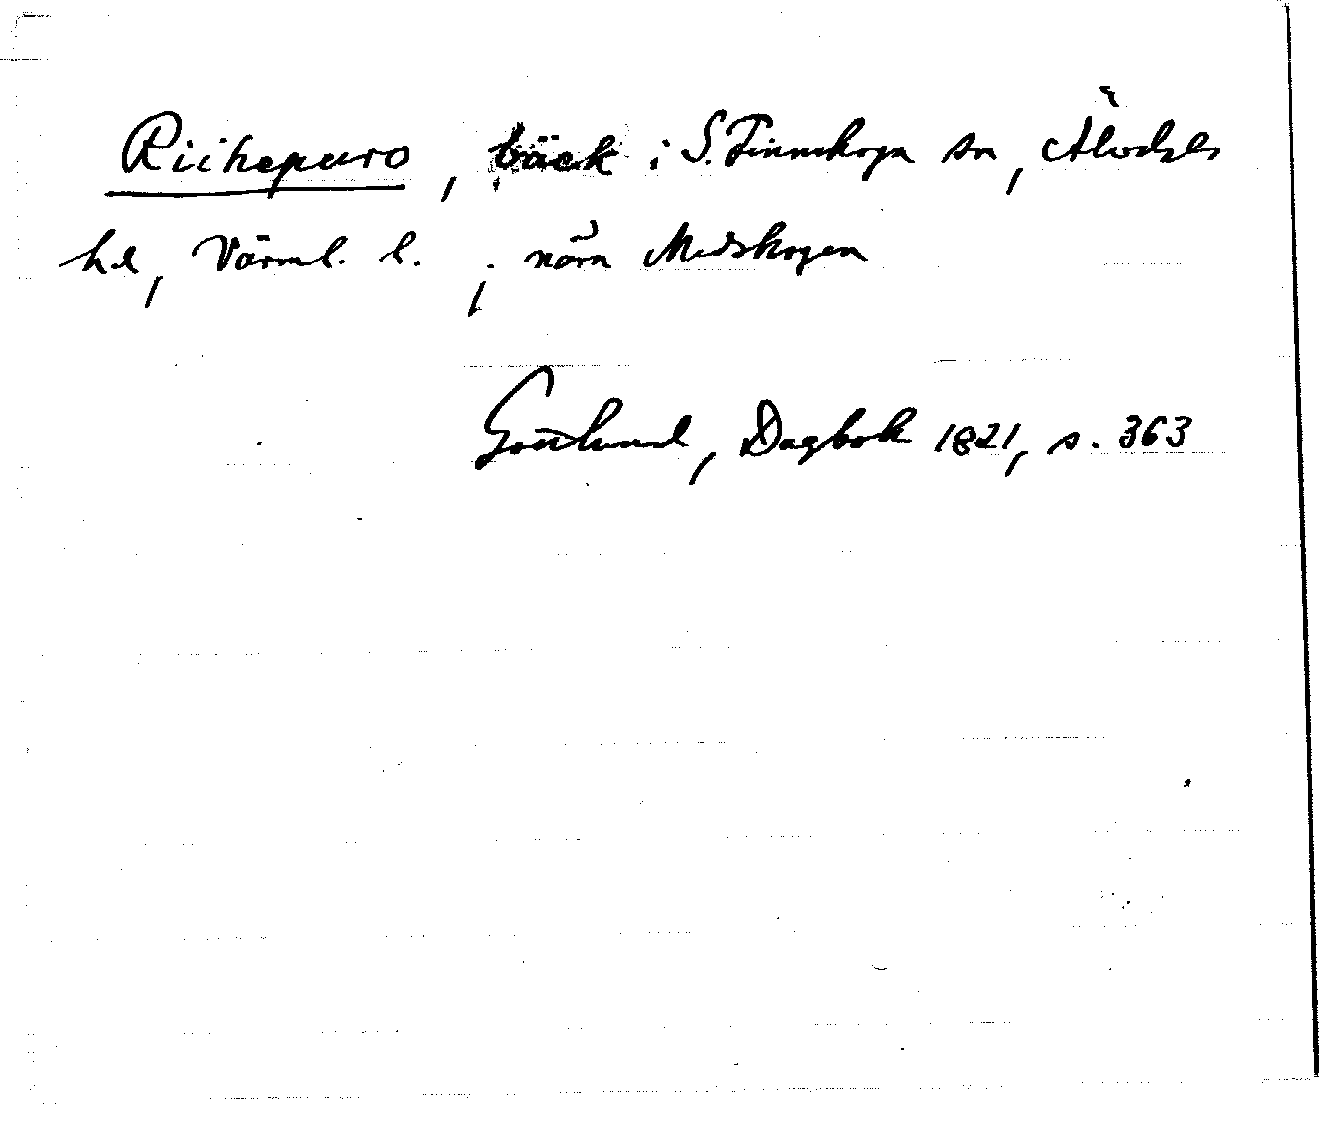 Riihepuro, bäck i S. Finnskoga sn, Älvdals
hd, Värml. l. ; nära Medskogen
Gottlund, Dagbok 1821, s. 363